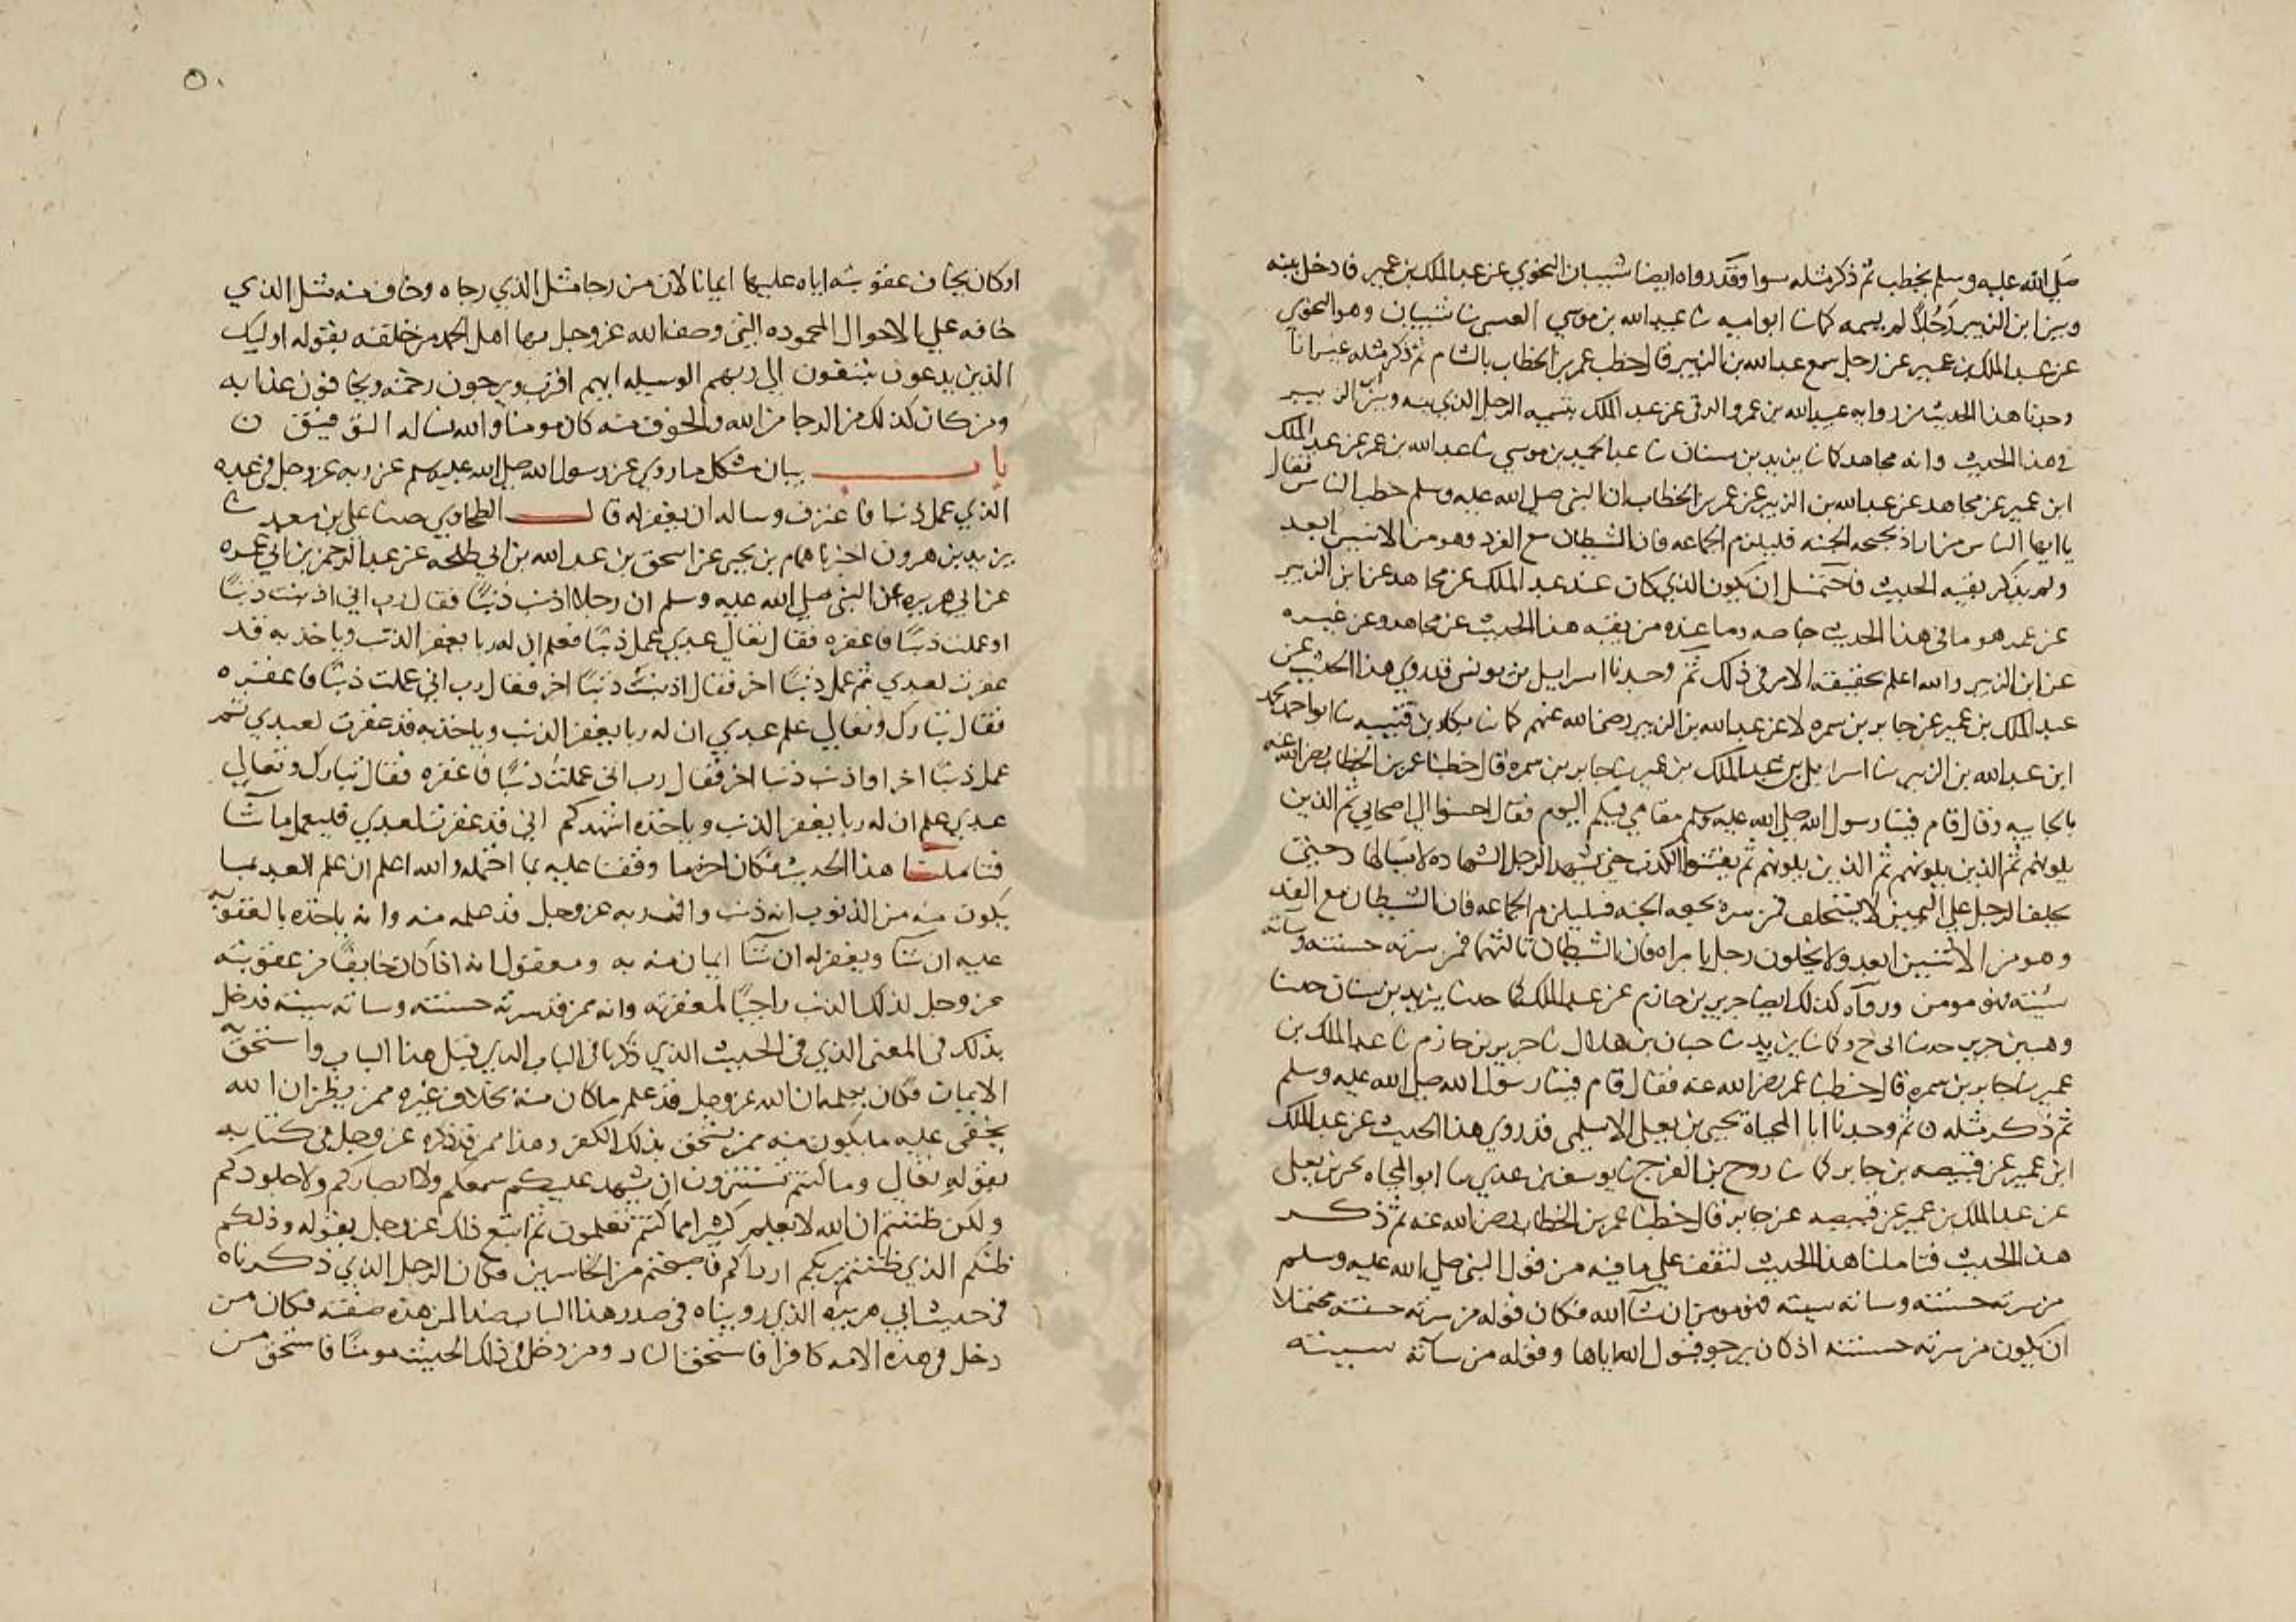 صلى الله عليه وسلم يخطب ثم ذكر مثله سوا وقد رواه ايضا شيبان النحوي عن عبد الملك بن عمير فادخل بينه
وبين ابن الزبير رجلا لم يسمه كما نا ابو اميه نا عبيد الله بن موسي العبسي نا شيبان وهو النحوي
عن عبد الملك بن عمير عن رجل سمع عبد الله بن الزبير قال خطب عمر بن الخطاب بالشام ثم ذكر مثله غير انا
وجدنا هذا الحديث من روايه عبيد الله بن عمرو الرقي عن عبد الملك بتسميه الرجل الذي بينه وبين ابن الزبير
في هذا الحديث وانه مجاهد كما نا يزيد بن سنان نا عبد الحميد بن موسي نا عبيد الله بن عمر عن عبد الملك
ابن عمير عن مجاهد عن عبد الله بن الزبير عن عمر بن الخطاب ان النبي صلى الله عليه وسلم خطب الناس فقال
يا ايها الناس من اراد بحبحه الجنه فليلزم الجماعه فان الشيطان مع الفرد وهو من الاثنين ابعد
ولم يذكر بقيه الحديث فاحتمل ان يكون الذي كان عند عبد الملك عن مجاهد عن ابن الزبير
عن عمر هو ما في هذا الحديث خاصه وما عنده من بقيه هذا الحديث عن مجاهد وعن غيره
عن ابن الزبير والله اعلم بحقيقه الامر في ذلك ثم وجدنا اسراييل بن يونس قد روي هذا الحديث عن
عبد الملك بن عمير عن جابر بن سمره لا عن عبد الله بن الزبير رضي الله عنهم كما نا بكار بن قتيبه نا ابو احمد محمد
ابن عبد الله بن الزبير نا اسراييل عن عبد الملك بن عمير نا جابر بن سمره قال خطبنا عمر بن الخطاب رضي الله عنه
بالجابيه وقال قام فينا رسول الله صلى الله عليه وسلم مقامي فيكم اليوم فقال احسنوا الى اصحابي ثم الذين
يلونهم ثم الذين يلونهم ثم يفشوا الكذب حتى يشهد الرجل الشهاده لا يسالها وحتى
يحلف الرجل علي اليمين لا يستحلف فمن سره بحبوحه الجنه فليلزم الجماعه فان الشيطان مع الفذ
وهو من الاثنين ابعد ولا يخلون رجل بامراه فان الشيطان ثالثهما فمن سرته حسنته وساته
سيئته فهو مومن ورواه كذلك ايضا جرير بن حازم عن عبد الملك كما حدثنا يزيد بن سنان حدثنا
وهب بن جرير حدثنا ابي ح وكما نا يزيد نا حبان بن هلال نا جرير بن حازم نا عبد الملك بن
عمير نا جابر بن سمره قال خطبنا عمر رضي الله عنه فقال قام فينا رسول الله صلى الله عليه وسلم
ثم ذكر مثله ن ثم وجدنا ابا المحياة يحيى بن يعلى الاسلمي قد روي هذا الحديث عن عبد الملك
ابن عمير عن قبيصه بن جابر كما نا روح بن الفرج نا يوسف بن عدي نا ابو المحياه يحيى بن يعلى
عن عبد الملك بن عمير عن قبيصه عن جابر قال خطبنا عمر بن الخطاب رضي الله عنه ثم ذكر
هذا الحديث فتاملنا هذا الحديث لنقف علي ما فيه من قول النبي صلى الله عليه وسلم
من سرته حسنته وساته سيئته فهو مومن ان شآ الله فكان قوله من سرته حسنته محتملا
ان يكون من سرته حسنته اذ كان يرجو قبول الله اياها وقوله من ساته سيئته
٥٠
او كان يخاف عقوبته اياه عليها ايمانا لان من رجا مثل الذي رجاه وخاف منه مثل الذي
خافه علي الاحوال المحموده التي وصف الله عز وجل بها اهل الحمد من خلقه بقوله اوليك
الذين يدعون يبتغون الى ربهم الوسيله ايهم اقرب ويرجون رحمته ويخافون عذابه
ومن كان كذلك من الرجا من الله والخوف منه كان مومنا والله نساله التوفيق ن
باب بيان مشكل ما روي عن رسول الله صلى الله عليه وسلم عن ربه عز وجل في عبده
الذي عمل ذنبا فاعترف وساله ان يغفر له قال الطحاوي حدثنا علي بن معبد نا
يزيد بن هرون اخبرنا همام بن يحيى عن اسحق بن عبد الله بن ابي طلحه عن عبد الرحمن بن ابي عمره
عن ابي هريره عن النبي صلى الله عليه وسلم ان رجلا اذنب ذنبا فقال رب اني اذنبت ذنبا
او عملت ذنبا فاغفره فقال تعالى عبدي عمل ذنبا فعلم ان له ربا يغفر الذنب وياخذ به قد
غفرت لعبدي ثم عمل ذنبا اخر فقال اذنبت ذنبا اخر فقال رب اني عملت ذنبا فاغفره
فقال تبارك وتعالى علم عبدي ان له ربا يغفر الذنب وياخذ به قد غفرت لعبدي ثم
عمل ذنبا اخر او اذنب ذنبا اخر فقال رب اني عملت ذنبا فاغفره فقال تبارك وتعالى
عبدي علم ان له ربا يغفر الذنب وياخذه اشهدكم اني قد غفرت لعبدي فليعمل ما شآ
فتاملنا هذا الحديث فكان احق ما وقفنا عليه بما احتمله والله اعلم ان علم العبد بما
يكون منه من الذنوب انه ذنب وان ربه عز وجل قد علمه منه وانه ياخذه بالعقوبه
عليه ان شا ويغفر له ان شآ ايمان منه به ومعقول انه اذا كان خايفا من عقوبته
عز وجل لذلك الذنب راجيا لمغفرته وانه ممن قد سرته حسنته وساته سيئته فدخل
بذلك في المعنى الذي في الحديث الذي ذكرنا في الباب الذي قبل هذا الباب واستحق
الايمان فكان بعلمه ان الله عز وجل قد علم ما كان منه بخلاف غيره ممن يظن ان الله
يخفى عليه ما يكون منه ممن يستحق بذلك الكفر وهذا ممن قد ذكره عز وجل في كتابه
بقوله تعالى وما كنتم تستترون ان يشهد عليكم سمعكم ولا ابصاركم ولا جلودكم
ولكن ظننتم ان الله لا يعلم كثيرا مما كنتم تعلمون ثم اتبع ذلك عز وجل بقوله وذلكم
ظنكم الذي ظننتم بربكم ارداكم فاصبحتم من الخاسرين فكان الرجل الذي ذكرناه
في حديث ابي هريره الذي رويناه في صدر هذا الباب ضدا لمن هذه صفته فكان من
دخل في هذه الايه كافرا فاستحق النار ومن دخل في ذلك الحديث مومنا فاستحق من